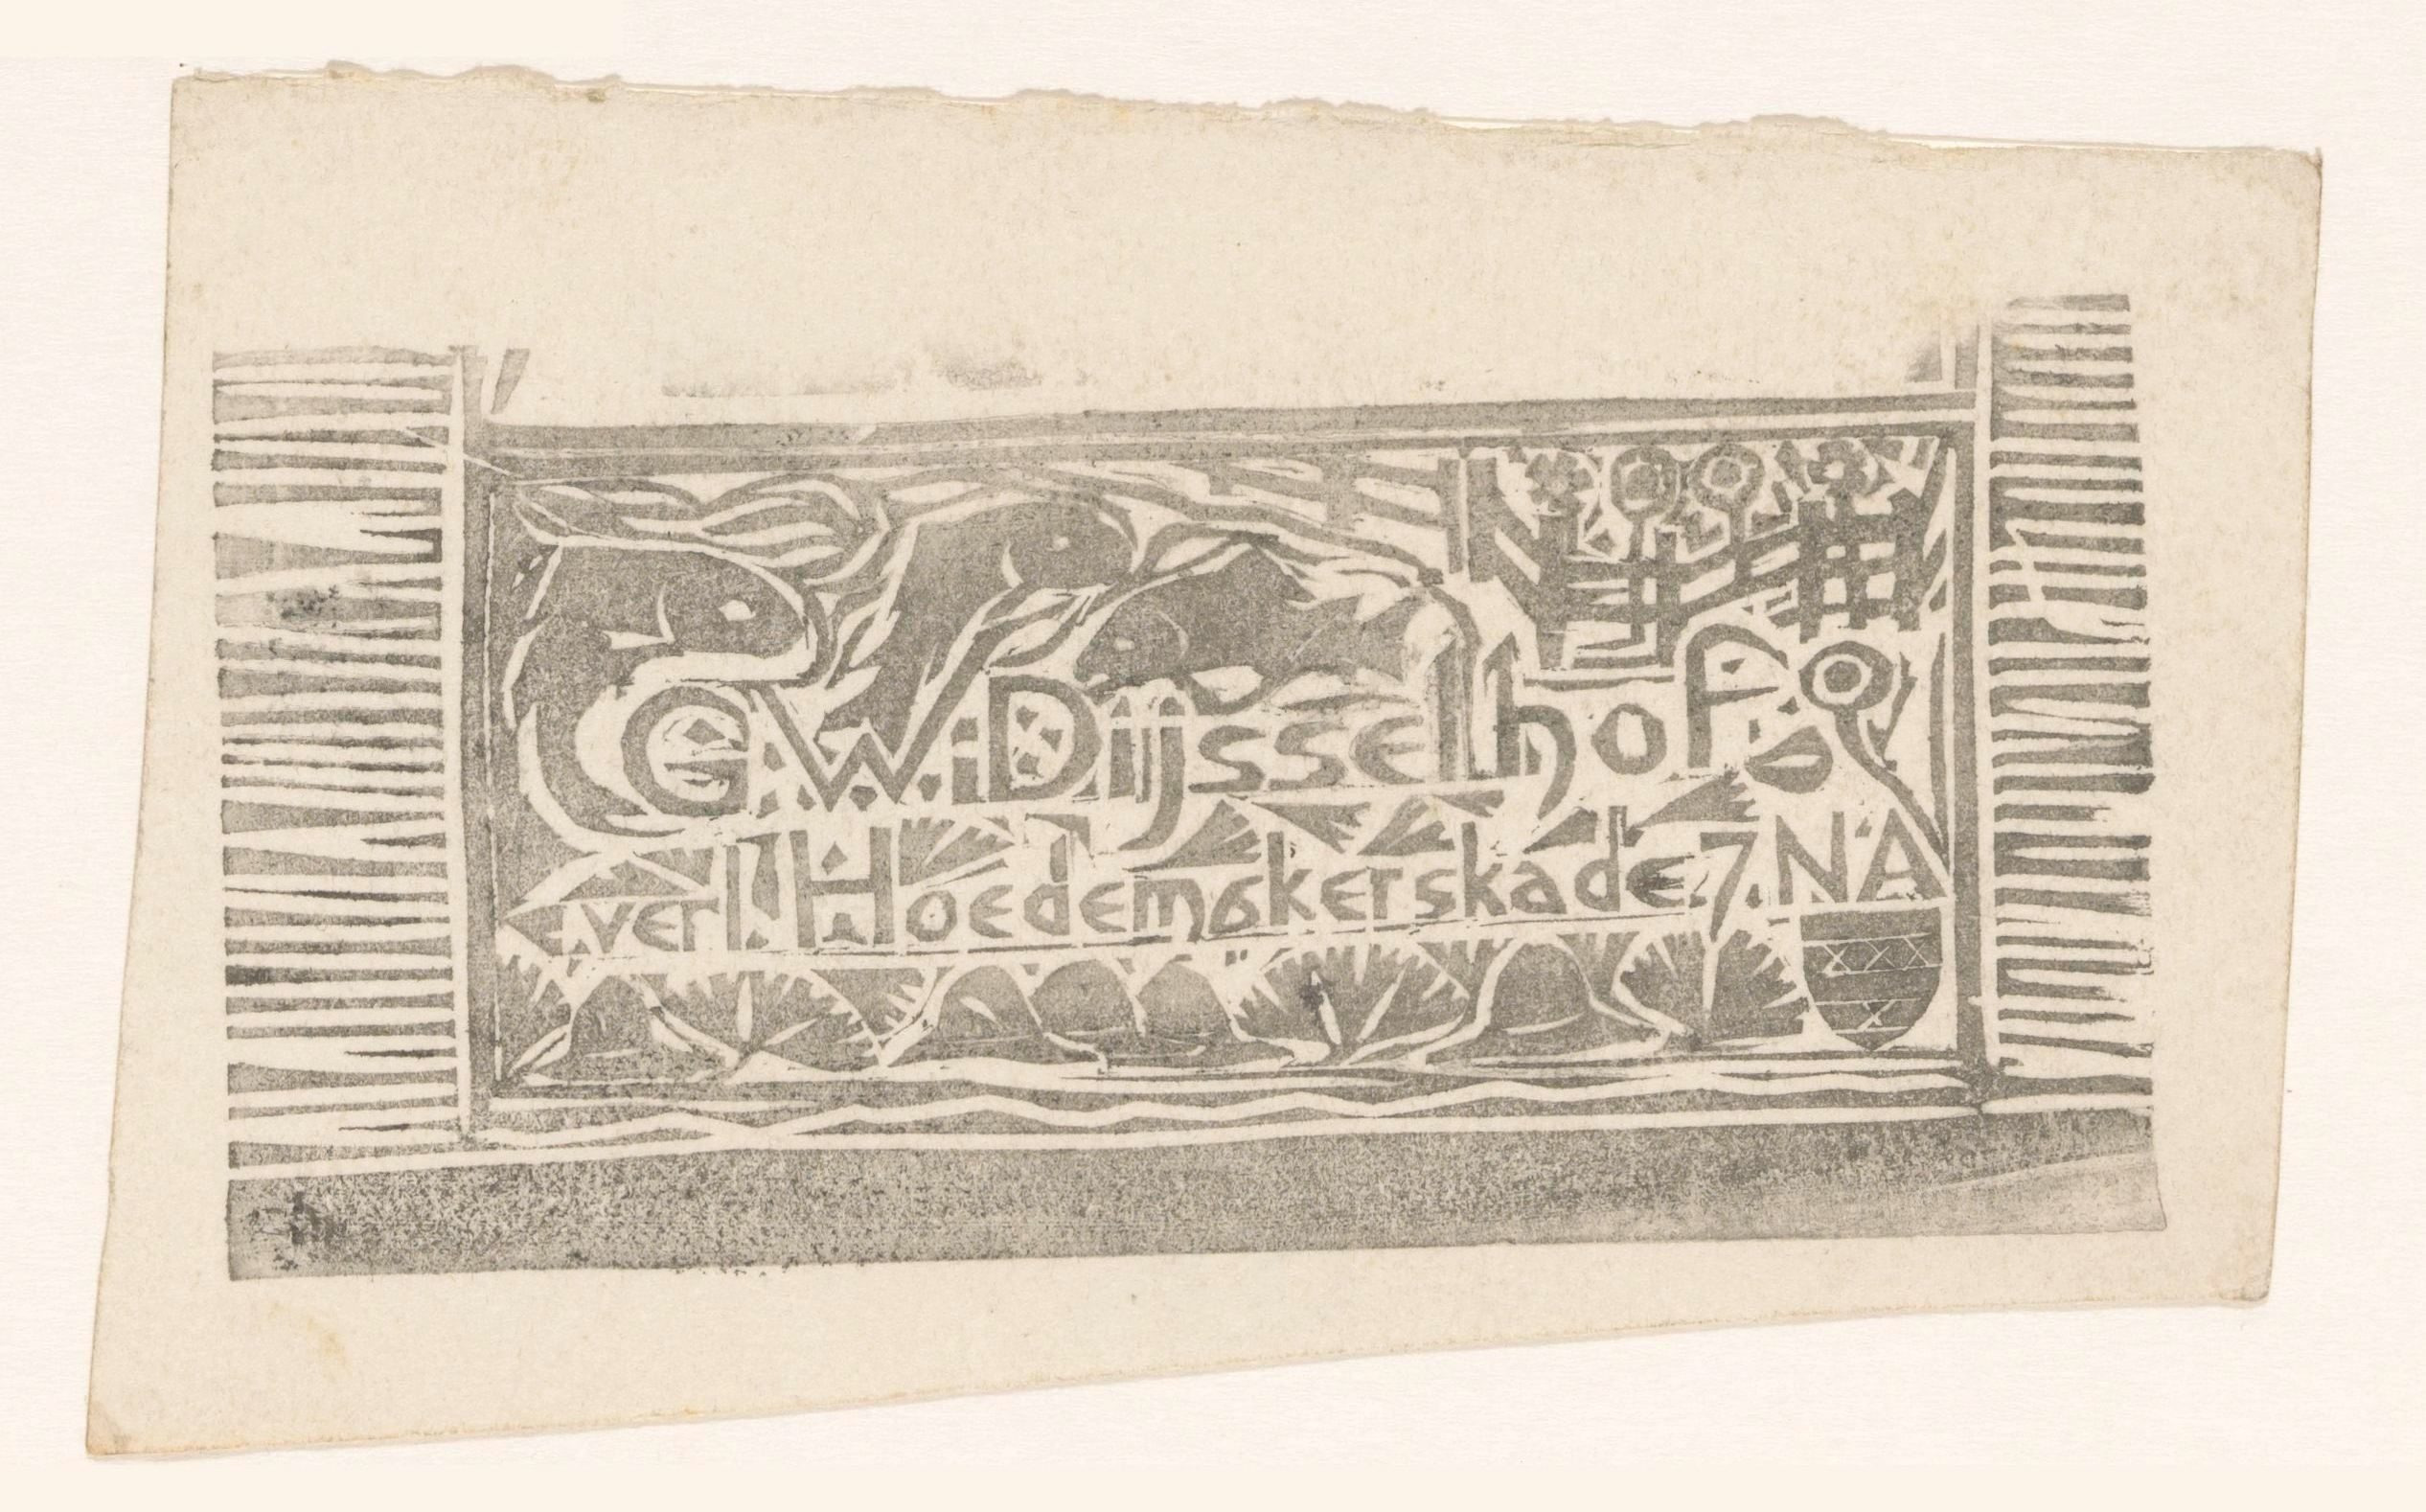 G.W. Dijsselhof
verl. Hoedemakerskade 7. NA